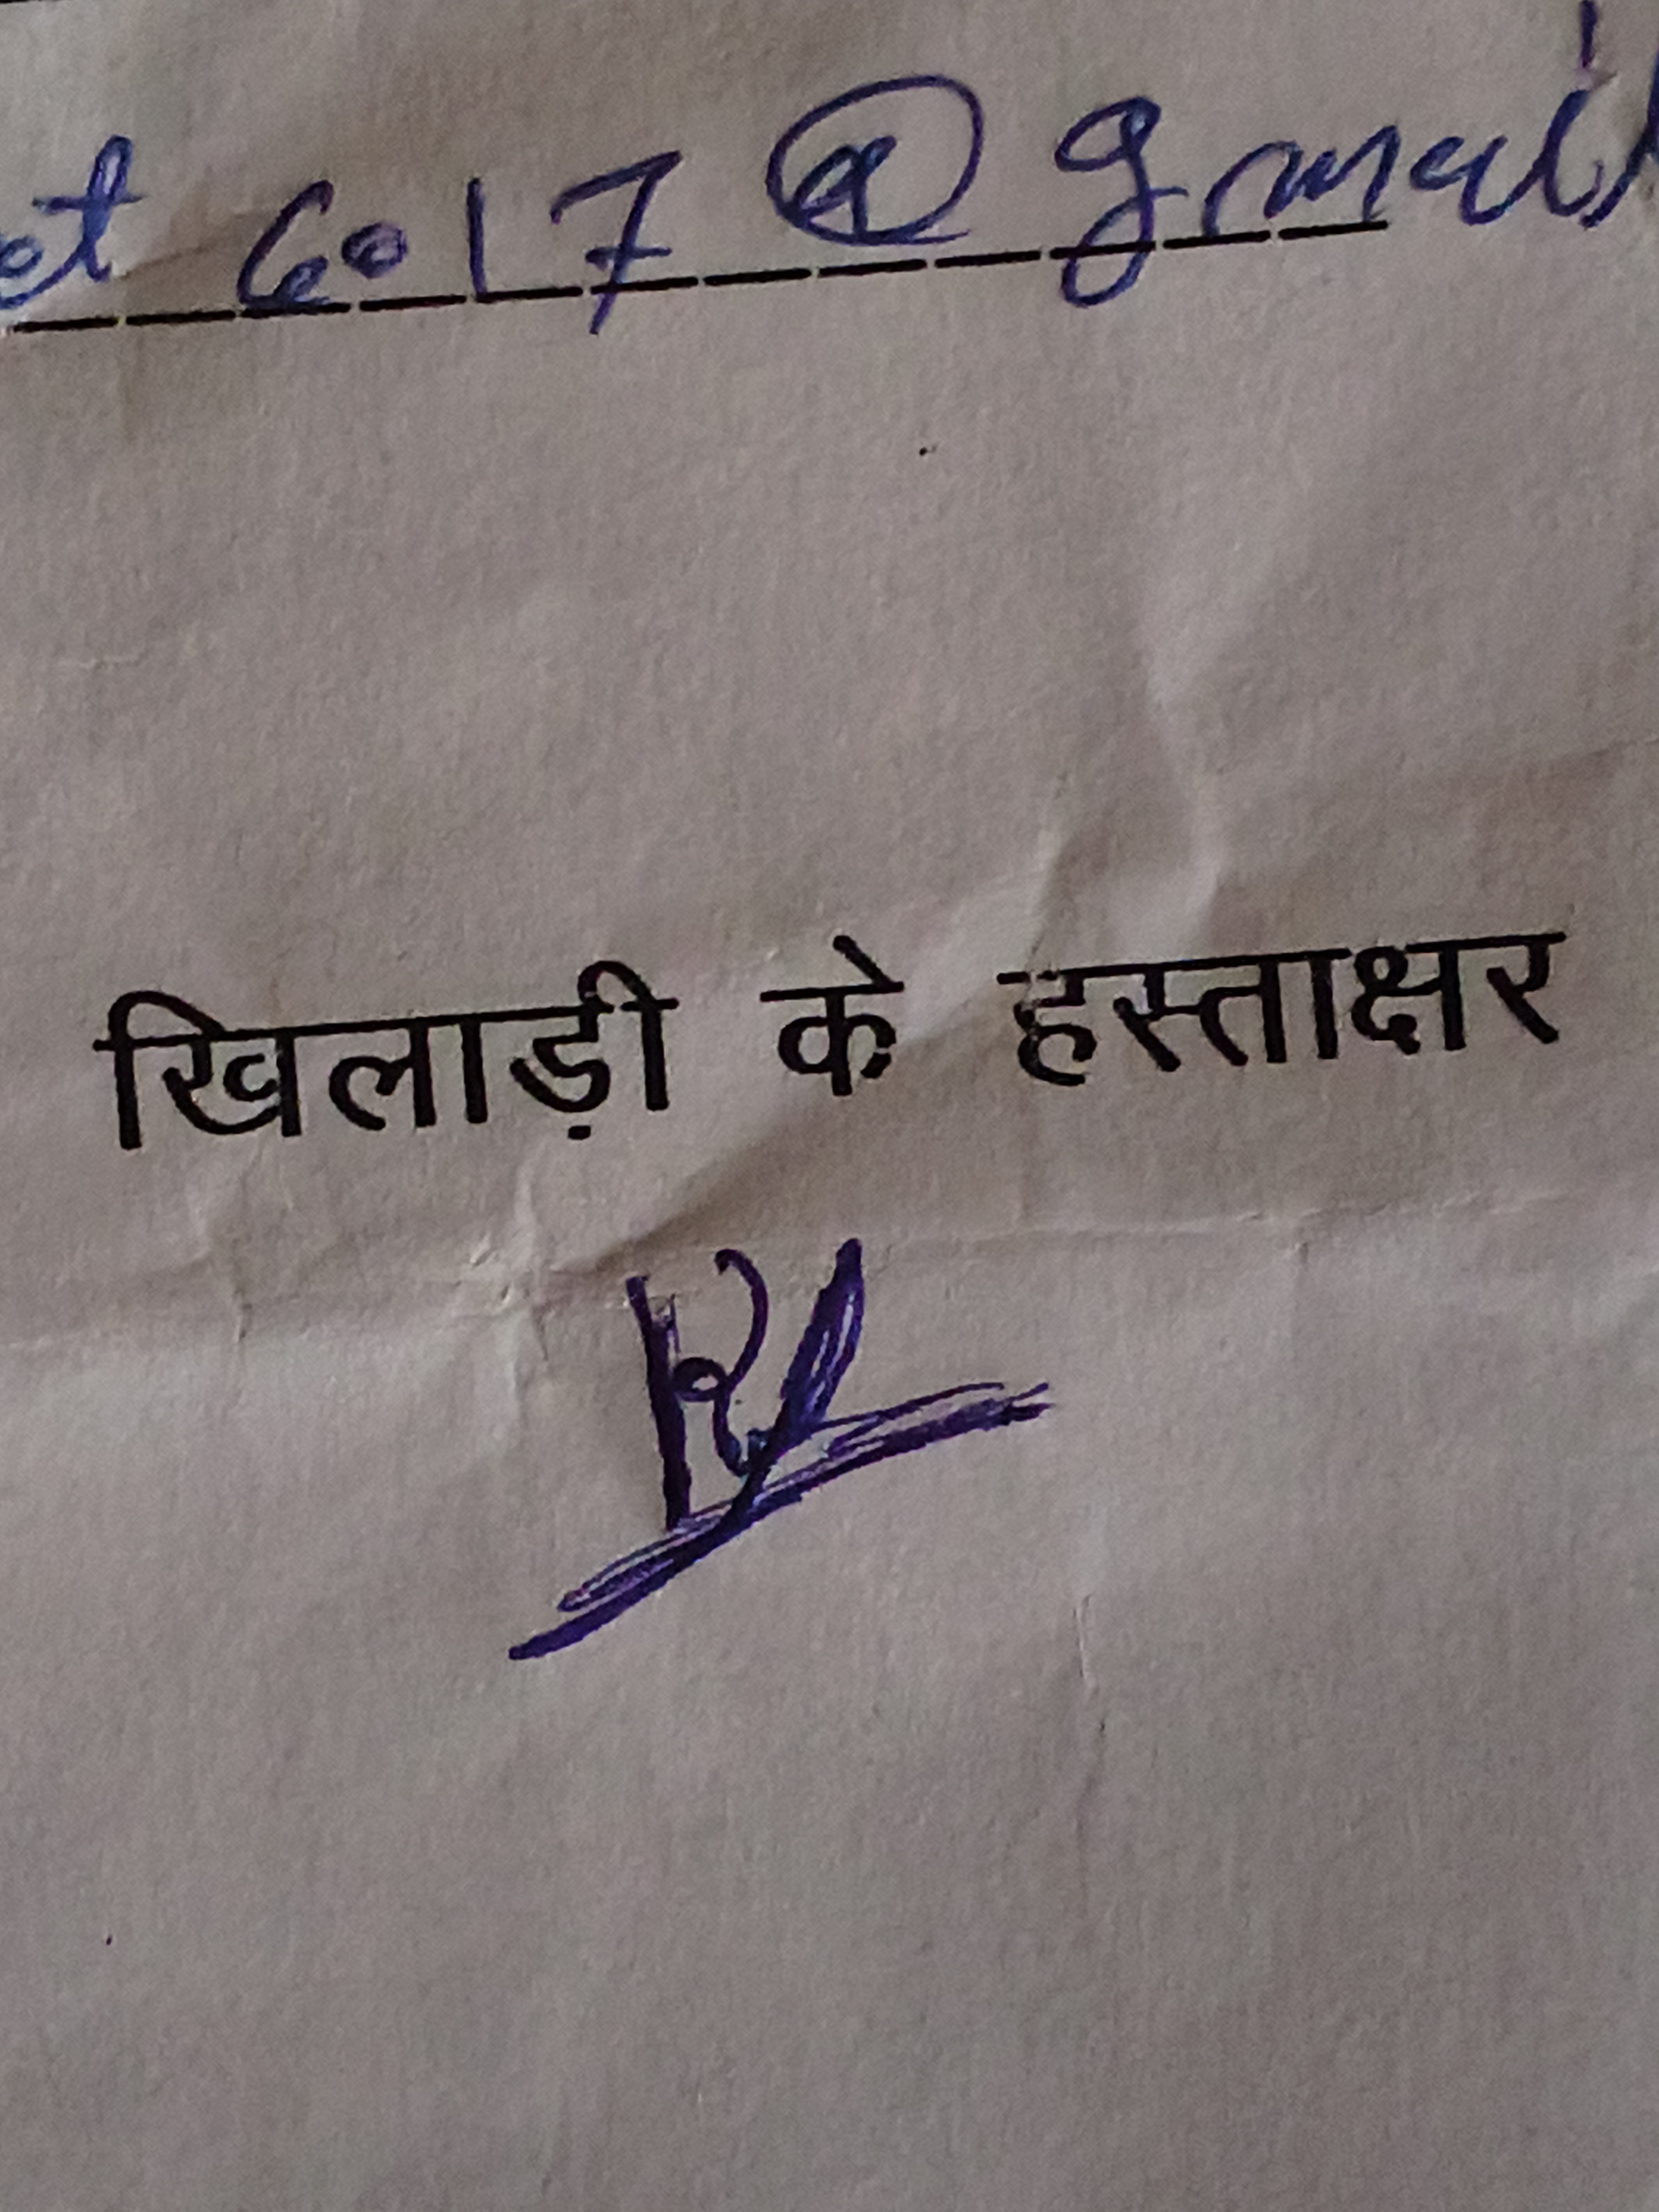 et 6017 @ gmail
खिलाड़ी के हस्ताक्षर